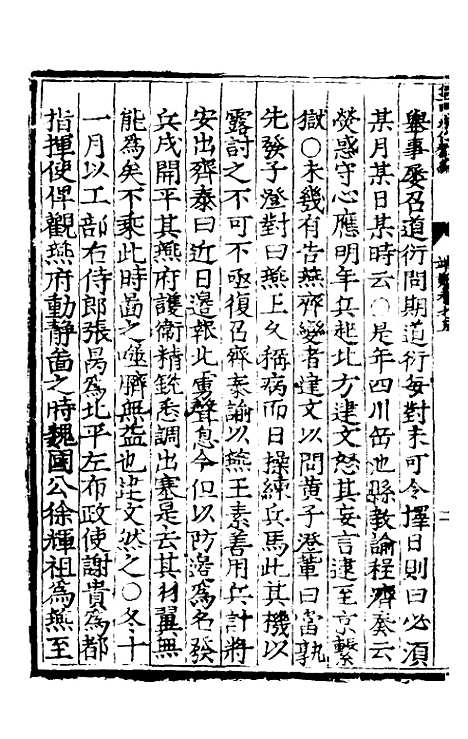 舉事屡召道衍問期道衍每對未可令擇日則曰必湏
某月某日某時云○是年四川岳池縣教諭程濟奏云
熒惑守心應明年兵起北方建文怒其妄言逮至京繫
獄○未幾有告燕齊變者建文以問黄子澄軰曰當孰
先發子澄對曰燕上久稱病而日操練兵馬此其機以
露討之不可不亟復召齊泰諭以燕王素善用兵計將
安出齊泰曰近日邊報北虜聲息今但以防邊爲名發
兵戍開平其燕府護衛精銳悉調出塞是去其材翼無
能爲矣不乘此時啚之噬臍無益也建文然之○冬十
一月以工部右侍郎張昺爲北平左布政使謝貴爲都
指揮使俾觀燕府動静啚之時魏國公徐輝祖爲燕至